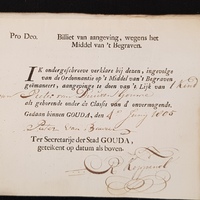 Pro Deo. Billiet van aangeving, wegens het
Middel van 't Begraven.
IK ondergeschreve verklare bij dezen, ingevolge
van de Ordonnantie op 't Middel van 't Begraven
geëmaneert, aangevinge te doen van 't Lijk van 1 kind
van Pieter van
als gehorende onder de Classis van d'onvermogende.
Gedaan binnen GOUDA, den 4e Juny 1805
Pieter van
Ter Secretarije der Stad GOUDA,
geteikent op datum als boven.